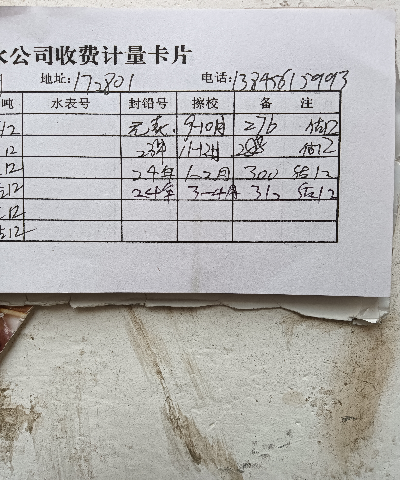 水公司收费计量卡片
地址:172801 电话:13845615993
吨 水表号 封铅号 擦校 备 注
12 元表. 9-10月 276 估12
12 23年 11-12月 288 估12
12 24年 1-2月 300 估12
估12 24年 3-4月 312 估12
12
估12